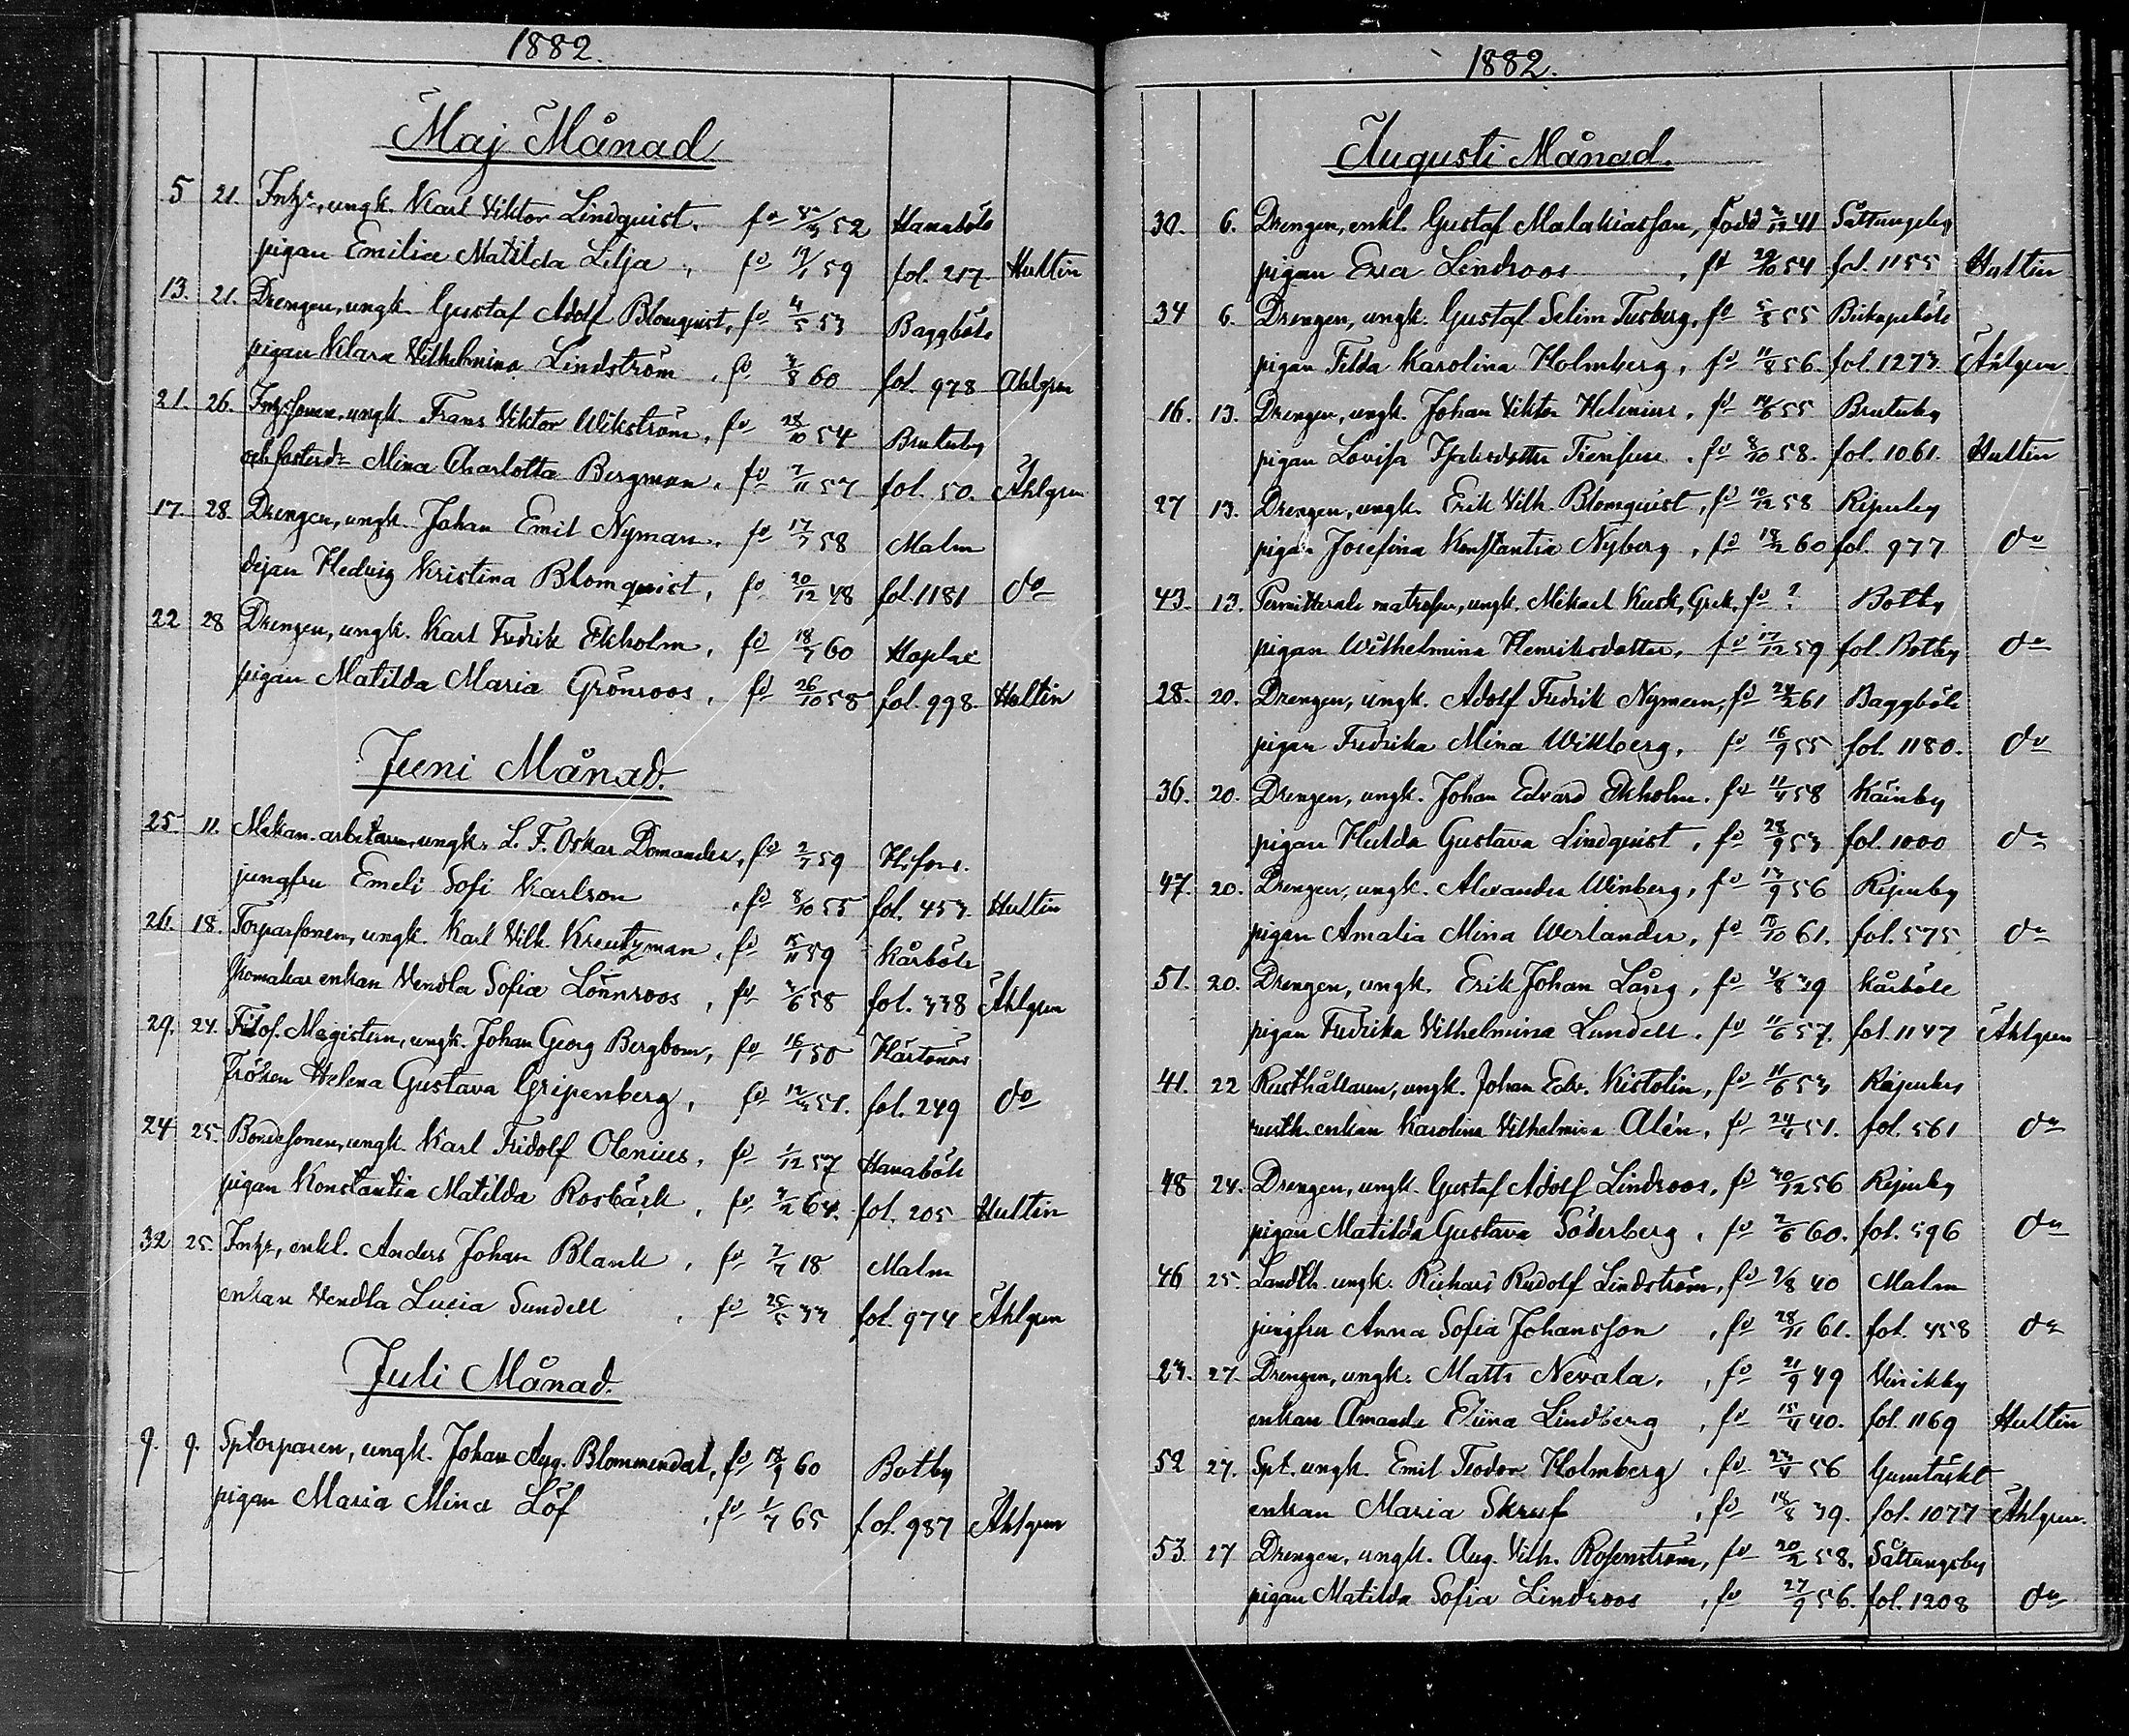 1882.
Maj Månad
5 21. Inhs, ungk. Karl Viktor Lindquist. fö 52 Hanaböle
pigan Emilia Matilda Lilja, fö 19/1 59 fol. 217 Hultin
13. 21. Drengen, ungk. Gustaf Adolf Blomquist, fö 4/5 53 Baggböle
pigan Klara Vilhelmina Lindström, fö 3/8 60 fol. 978 Ahlgren
21. 26. Inhssonen, ungk. Frans Viktor Wikström, fö 28/10 54 Brutuby
och fosterdr Mina Charlotta Bergman, fö 7/11 57 fol. 50. Åhlgren
17. 28. Drengen, ungk. Johan Emil Nyman, fö 17/7 58 Malm
dejan Hedvig Kristina Blomquist, fö 20/12 48 fol. 1181 do
22 28 Drengen, ungk. Karl Fredrik Ekholm, fö 18/7 60 Hoplax
pigan Matilda Maria Grönroos, fö 26/10 58 fol. 998 Hultin
Juni Månad.
25. 11. Mekan. arbetaren, ungk. L. F. Oskar Domander, fö 2/7 59 H:fors.
jungfru Emeli Sofi Karlson, fö 8/10 55 fol. 453 Hultin
26. 18. Torparsonen, ungk. Karl Vilh. Kreutzman, fö 15/11 59 Kårböle
skomakar enkan Vendla Sofia Lönnroos, fö 3/6 58 fol. 338 Åhlgren
29. 24. Filos. Magistern, ungk. Johan Georg Bergbom, fö 16/1 50 Hartonäs
Fröken Helena Gustava Gripenberg, fö 12/3 51. fol. 249 do
24 25. Bondesonen, ungk. Karl Fridolf Olenius, fö 1/12 57 Hanaböle
pigan Konstantia Matilda Rosbäck, fö 2/2 64. fol. 205 Hultin
32 25. Inhs, enkl. Anders Johan Blank, fö 7/7 18 Malm
enkan Vendla Lusia Sundell, fö 25/5 33 fol. 974 Åhlgren
Juli Månad.
9. 9. Sptorparen, ungk. Johan Aug. Blommendal, fö 18/9 60 Botby
pigan Maria Mina Löf, fö 1/7 65 fol. 987 Åhlgren
1882.
Augusti Månad.
30. 6. Drengen, enkl. Gustaf Malakiasson, född 3/12 41 Såttungsby
pigan Eva Lindroos, fö 29/10 54 fol. 1155 Hultin
34 6. Drengen, ungk. Gustaf Selim Tusberg, fö 5/8 55 Biskopsböle
pigan Tilda Karolina Holmberg, fö 11/8 56. fol. 1273 Åhlgren
16. 13. Drengen, ungk. Johan Viktor Helenius, fö 14/6 55 Brutuby
pigan Lovisa Isaksdotter Tiensuu, fö 8/10 58. fol. 1061. Hultin
27 13. Drengen, ungk. Erik Vilh. Blomquist, fö 10/12 58 Ripuby
pigan Josefina Konstantia Nyberg, fö 18/2 60 fol. 977 do
43. 13. Permitterade matrosen, ungk. Mikael Kuck, Grek. fö ? Botby
pigan Wilhelmina Henriksdotter, fö 17/12 59 fol. Botby do
28. 20. Drengen, ungk. Adolf Fredrik Nyman, fö 24/2 61 Baggböle
pigan Fredrika Mina Wikberg, fö 16/9 55 fol. 1180. do
36. 20. Drengen, ungk. Johan Edvard Ekholm, fö 11/4 58 Käinby
pigan Hulda Gustava Lindquist, fö 28/9 53 fol. 1000 do
47. 20. Drengen, ungk. Alexander Winberg, fö 13/9 56 Ripuby
pigan Amalia Mina Werlander, fö 18/10 61. fol. 575 do
51. 20. Drengen, ungk. Erik Johan Lång, fö 4/8 39 Kårböle
pigan Fredrika Vilhelmina Lundell, fö 11/6 57. fol. 1147 Åhlgren
41. 22 Rusthållaren, ungk. Johan Edv. Kistolin, fö 11/6 53 Ripuby
rusth. enkan Karolina Vilhelmina Alén, fö 24/4 51. fol. 561 do
48 24. Drengen, ungk. Gustaf Adolf Lindroos, fö 30/12 56 Ripuby
pigan Matilda Gustava Söderberg, fö 2/6 60. fol. 596 do
46 25. Landth. ungk. Richard Rudolf Lindström, fö 9/8 40 Malm
jungfru Anna Sofia Johansson, fö 28/11 61. fol. 458 do
23. 27. Drengen, ungk. Matts Nevala, fö 21/9 49 Vinikby
enkan Amanda Elina Lindberg, fö 15/4 40. fol. 1169 Hultin
52 27. Spt. ungk. Emil Teodor Holmberg, fö 23/4 56 Gumtäckt
enkan Maria Skruf, fö 18/8 39. fol. 1077 Åhlgren.
53. 27 Drengen, ungk. Aug. Vilh. Rosenström, fö 20/2 58. Såttungsby
pigan Matilda Sofia Lindroos, fö 27/9 56. fol. 1208 do